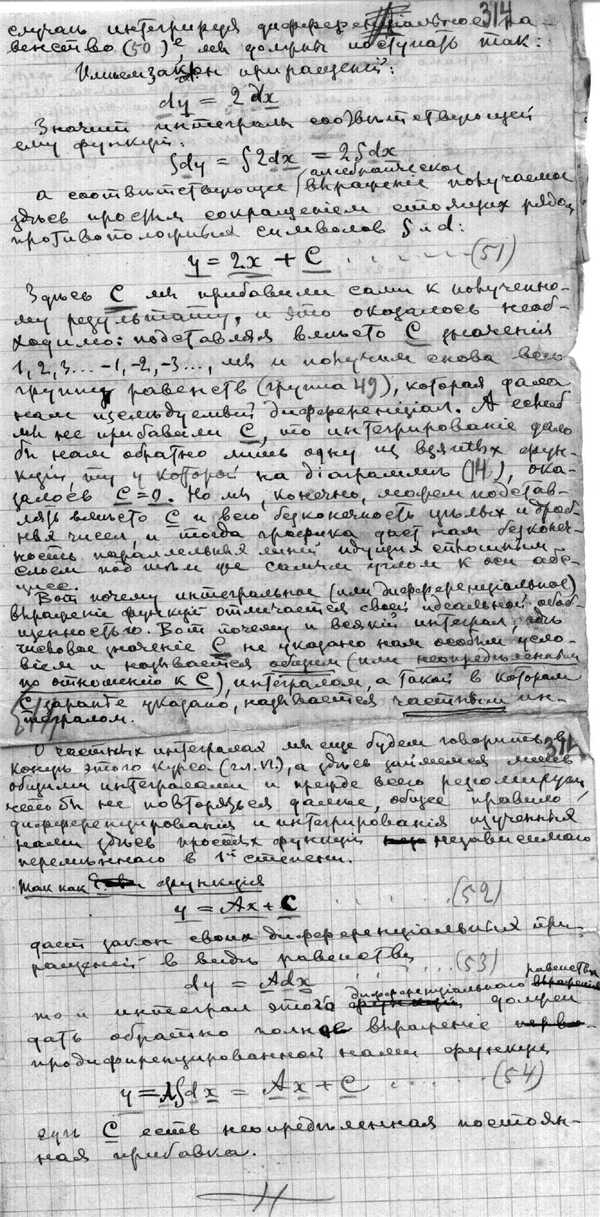 314
случаѣ интегрируя дифференціальное ра-
венство (50)е мы должны поступать так:
Имѣем закон приращеній:
dy = 2dx
Значит интеграл соотвѣтствующей
ему функціи:
∫dy = ∫2dx = 2∫dx
алгебраическое
а соотвѣтствующее выраженіе получаемое
здѣсь простым сокращеніем стоящих рядом
противоположных символов ∫ и d:
y = 2x + C . . . . . (51)
Здѣсь C мы прибавили сами к полученно-
му результату, и это оказалось необ-
ходимо: подставляя вмѣсто C значенія
1, 2, 3... -1, -2, -3..., мы и получим снова всю
группу равенств (группа 49), которая дала
нам изслѣдуемый дифференціал. А если б
мы не прибавили C, то интегрированіе дало
бы нам обратно лишь одну из взятых функ-
цій, ту у которой на діаграммѣ (14), ока-
залось C=0. Но мы, конечно, можем подстав-
лять вмѣсто C и всю безконечность цѣлых и дроб-
ных чисел, и тогда графика даст нам безконеч-
ность параллельных линій идущих сплошным
слоем под тѣм же самым углом к оси абс-
цисс.
Вот почему интегральное (или дифференціальное)
выраженіе функцій отличается своей идеальной обоб-
щенностью. Вот почему и всякій интеграл, гдѣ
числовое значеніе C не указано нам особым усло-
віем и называется общим (или неопредѣленным
по отношенію к C), интегралом, а такой в котором
C заранѣе указано, называется частным ин-
тегралом.
314
О частных интегралах мы еще будем говорить в
концѣ этого курса (гл. VI), а здѣсь займемся лишь
общими интегралами и прежде всего резюмируем
чтобы не повторяться далѣе, общее правило
дифференцированія и интегрированія изученных
нами здѣсь простых функцій независимаго
перемѣннаго в 1й степени.
Так как функція
y = Ax + C . . . . . (52)
дает закон своих дифференціальных при-
ращеній в видѣ равенства
dy = Adx . . . . (53)
дифференціальнаго равенства
то и интеграл этого должен
дать обратно полное выраженіе
продифференцированной нами функціи
y = A∫dx = Ax + C . . . . . (54)
гдѣ C есть неопредѣленная постоян-
ная прибавка.